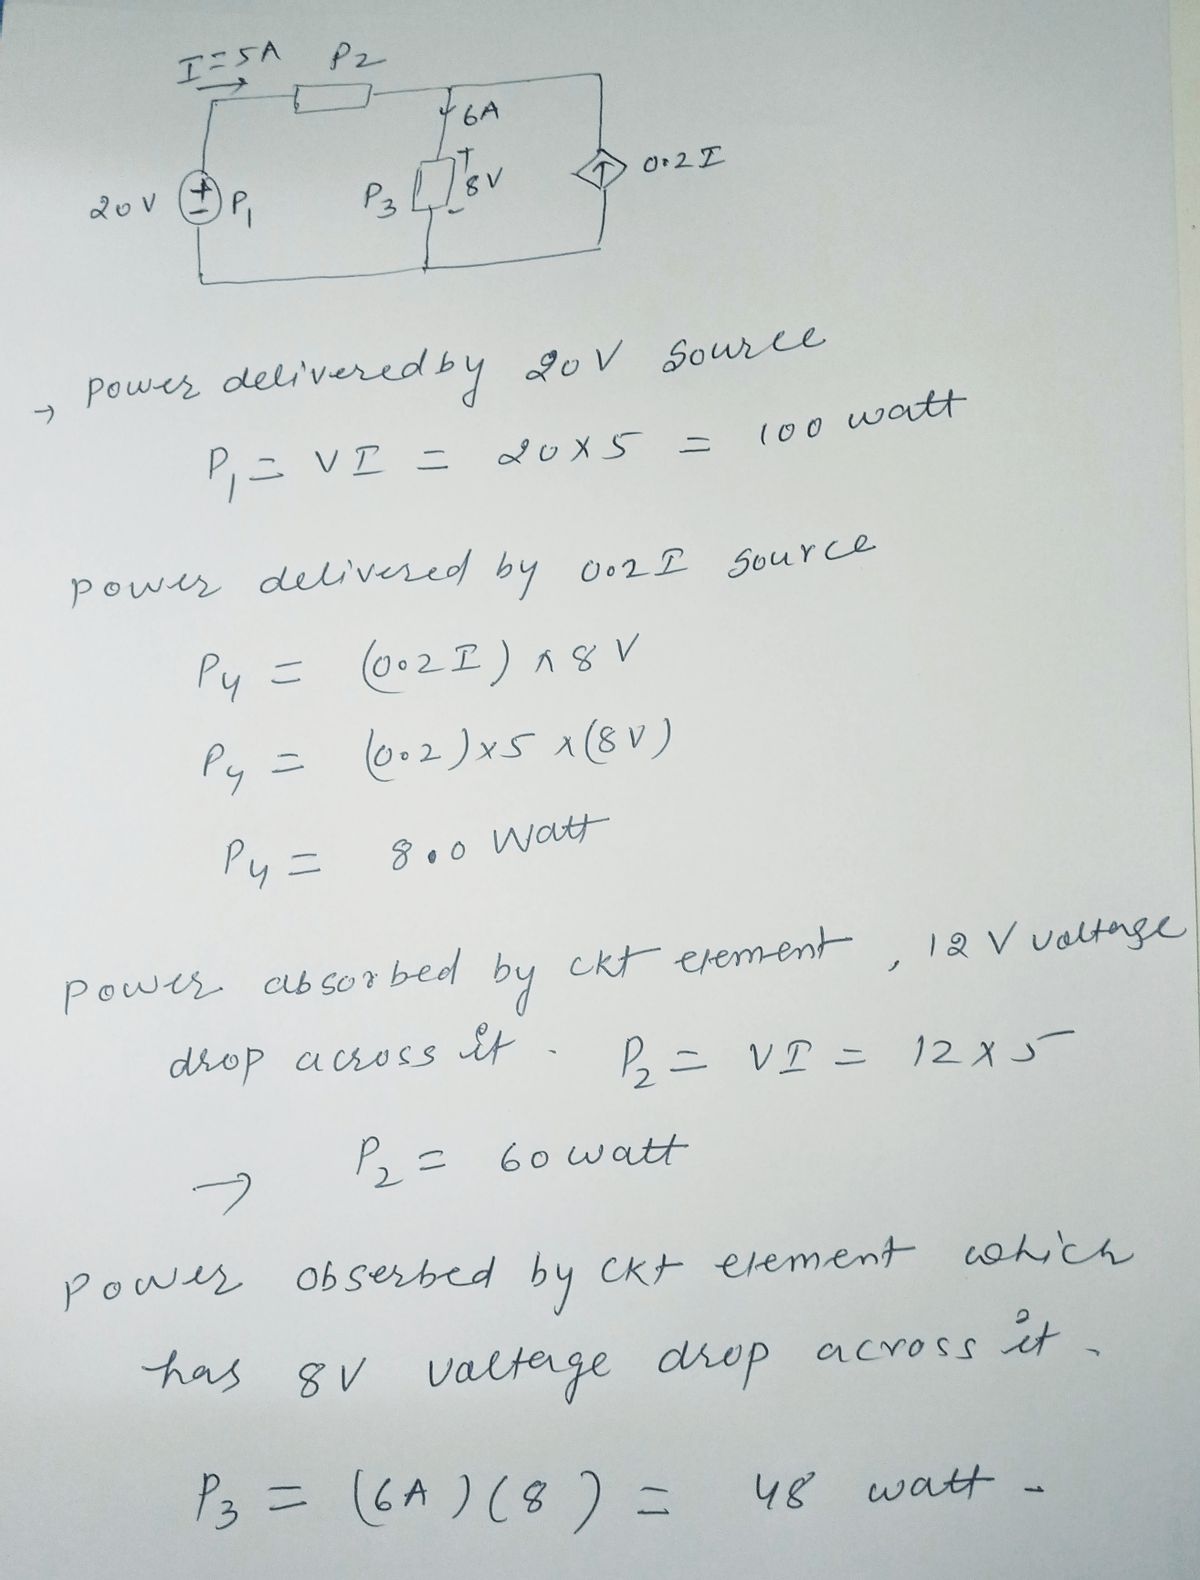 I=5A P2
6A
+
20V + - P1 P3 8V 0.2I
-
→ Power delivered by 20V Source
P1 = VI = 20x5 = 100 watt
Power delivered by 0.2I Source
P4 = (0.2I) x 8V
P4 = (0.2)x5 x(8V)
P4 = 8.0 Watt
Power absorbed by ckt element, 12 V voltage
drop across it. P2 = VI = 12 x 5
→ P2 = 60 watt
Power obserbed by ckt element which
has 8V valtage drop across it.
P3 = (6A)(8) = 48 watt.